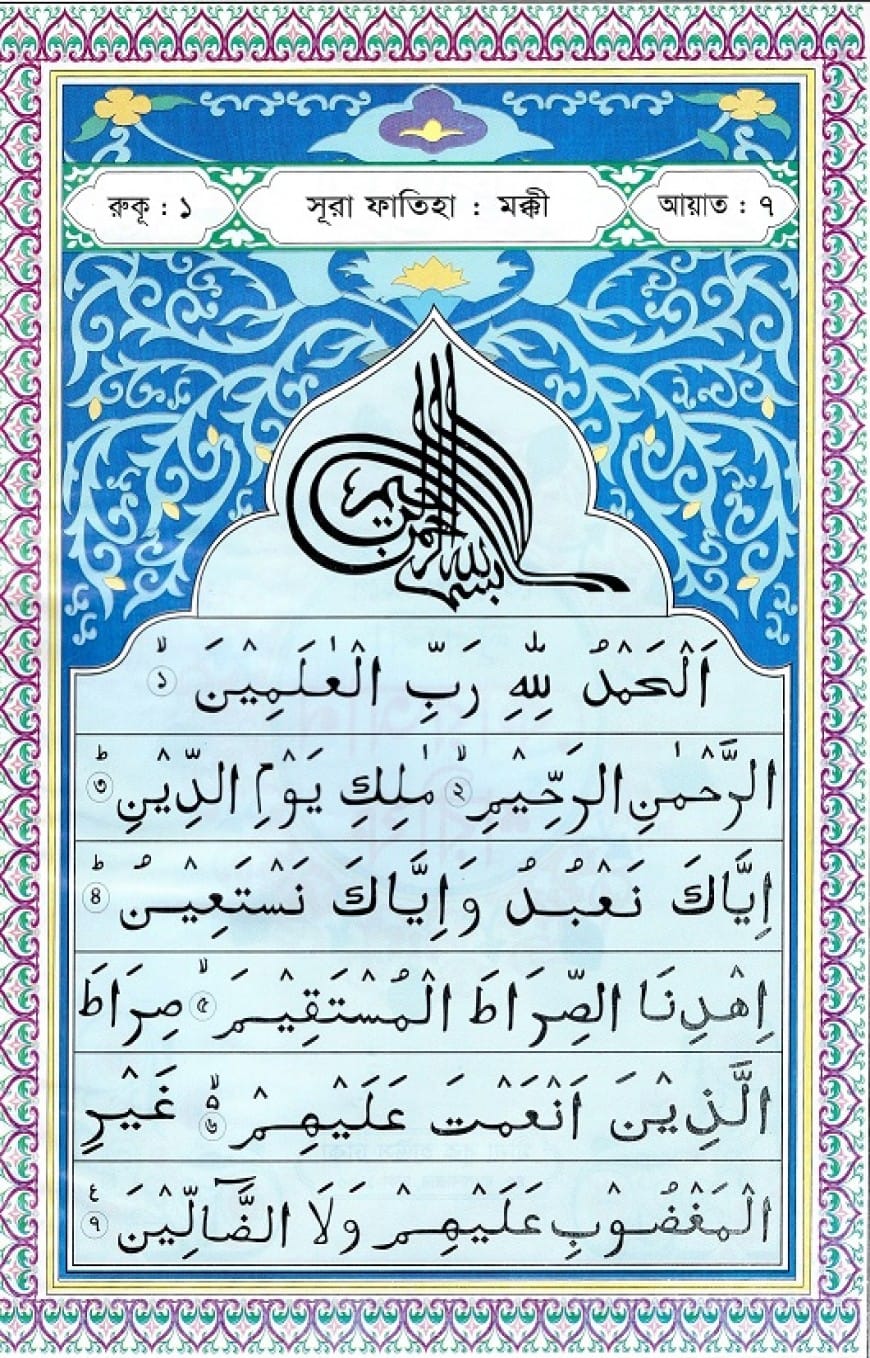 রুকূ : ১
সূরা ফাতিহা : মক্কী
আয়াত : ৭
بسم الله الرحمن الرحيم
اَلْحَمْدُ لِلّٰهِ رَبِّ الْعٰلَمِيْنَ ۙ ١
الرَّحْمٰنِ الرَّحِيْمِ ۙ ٢ مٰلِكِ يَوْمِ الدِّيْنِ ؕ ٣
اِيَّاكَ نَعْبُدُ وَاِيَّاكَ نَسْتَعِيْنُ ؕ ۴
اِهْدِنَا الصِّرَاطَ الْمُسْتَقِيْمَ ۙ ۵ صِرَاطَ
الَّذِيْنَ اَنْعَمْتَ عَلَيْهِمْ ۙ۵ ۶ غَيْرِ
الْمَغْضُوْبِ عَلَيْهِمْ وَلَا الضَّآلِّيْنَ ع ٧